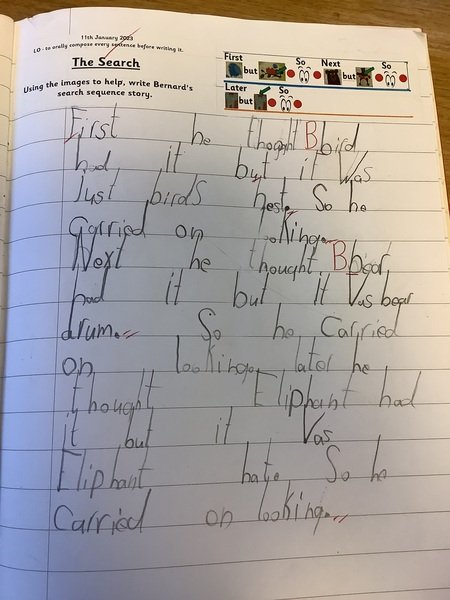 11th January 2023
LO - to orally compose every sentence before writing it.
The Search
Using the images to help, write Bernard's
search sequence story.
First but So Next but So
Later but So
First he thoght Bbird
had it but it Vas
Just birds nest. So he
Carried on looking.
Next he thought Bbear
had it but it Vas bear
drum. So he Carried
on looking. later he
thought Eliphant had
it but it Vas
Eliphant hat. So he
Carried on looking.